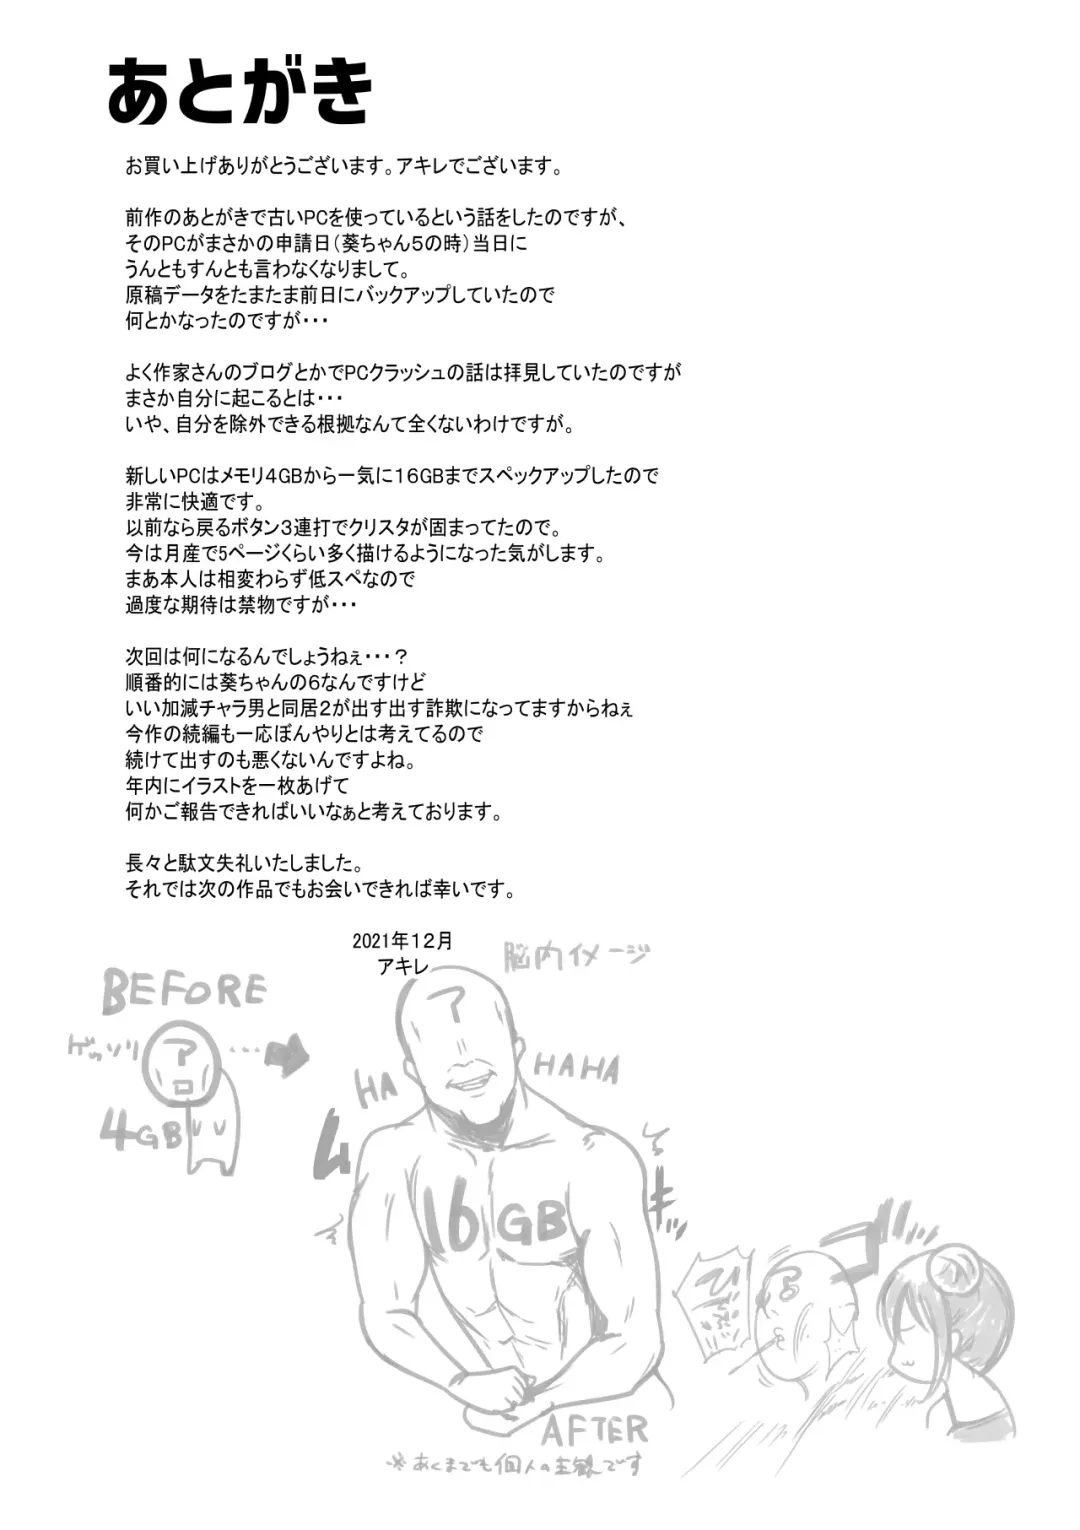 あとがき
お買い上げありがとうございます。アキレでございます。
前作のあとがきで古いPCを使っているという話をしたのですが、
そのPCがまさかの申請日(葵ちゃん5の時)当日に
うんともすんとも言わなくなりまして。
原稿データをたまたま前日にバックアップしていたので
何とかなったのですが・・・
よく作家さんのブログとかでPCクラッシュの話は拝見していたのですが
まさか自分に起こるとは・・・
いや、自分を除外できる根拠なんて全くないわけですが。
新しいPCはメモリ4GBから一気に16GBまでスペックアップしたので
非常に快適です。
以前なら戻るボタン3連打でクリスタが固まってたので。
今は月産で5ページくらい多く描けるようになった気がします。
まあ本人は相変わらず低スペなので
過度な期待は禁物ですが・・・
次回は何になるんでしょうねぇ・・・?
順番的には葵ちゃんの6なんですけど
いい加減チャラ男と同居2が出す出す詐欺になってますからねぇ
今作の続編も一応ぼんやりとは考えてるので
続けて出すのも悪くないんですよね。
年内にイラストを一枚あげて
何かご報告できればいいなぁと考えております。
長々と駄文失礼いたしました。
それでは次の作品でもお会いできれば幸いです。
2021年12月
アキレ
脳内イメージ
BEFORE
ゲッソリ
ア
・・・
4GB
ア
HA
HAHA
ムキッ
16GB
ア
AFTER
※あくまでも個人の主観です